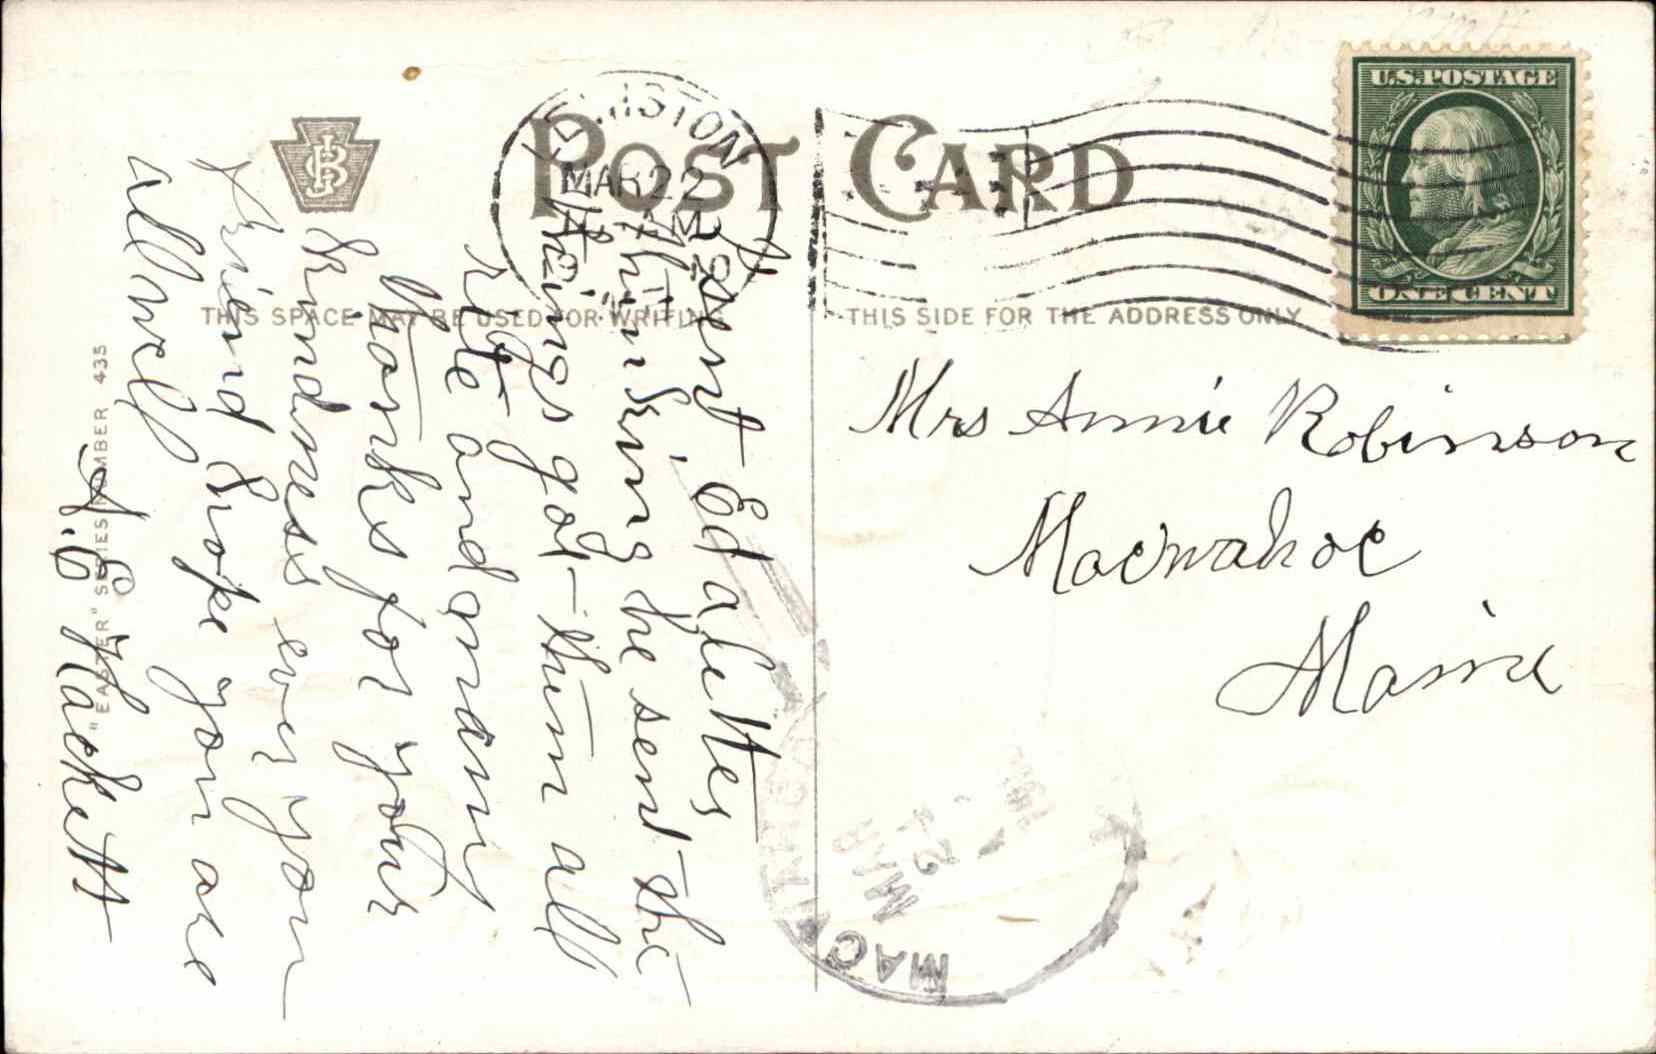 POST CARD
THIS SPACE MAY BE USED FOR WRITING
THIS SIDE FOR THE ADDRESS ONLY
U.S. POSTAGE
ONE CENT
MAR 22
AM
Mrs Annie Robinson
Macwahoc
Maine
I sent Ed a letter
thinking he sent the
things got them all
rite and many
thanks for your
kindness ever your
Friend hope you are
all well
A. E Hackett
"EASTER" SERIES NUMBER 435
MAC
MAR